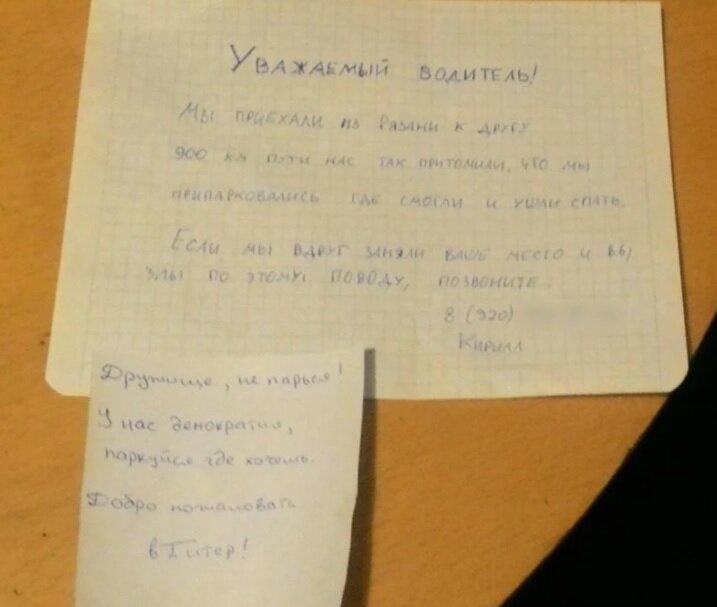 Уважаемый водитель!
Мы приехали из Рязани к другу
900 км пути нас так притомили, что мы
припарковались где смогли и ушли спать.
Если мы вдруг заняли ваше место и вы
злы по этому поводу, позвоните.
8 (920)
Кирилл
Дружище, не парься!
У нас демократия,
паркуйся где хочешь.
Добро пожаловать
в Питер!